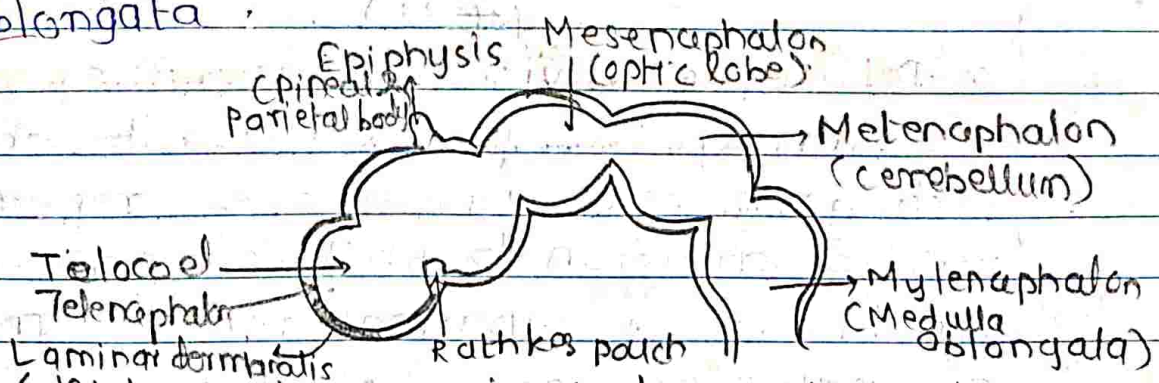 olongata.
Epiphysis
(pineal &
parietal body)
Mesencephalon
(optic lobe).
Metencephalon
(cerebellum)
Telocoel
Telencephalon
Laminar
Rathkes pouch
Mylencephalon
(Medulla
oblongata)